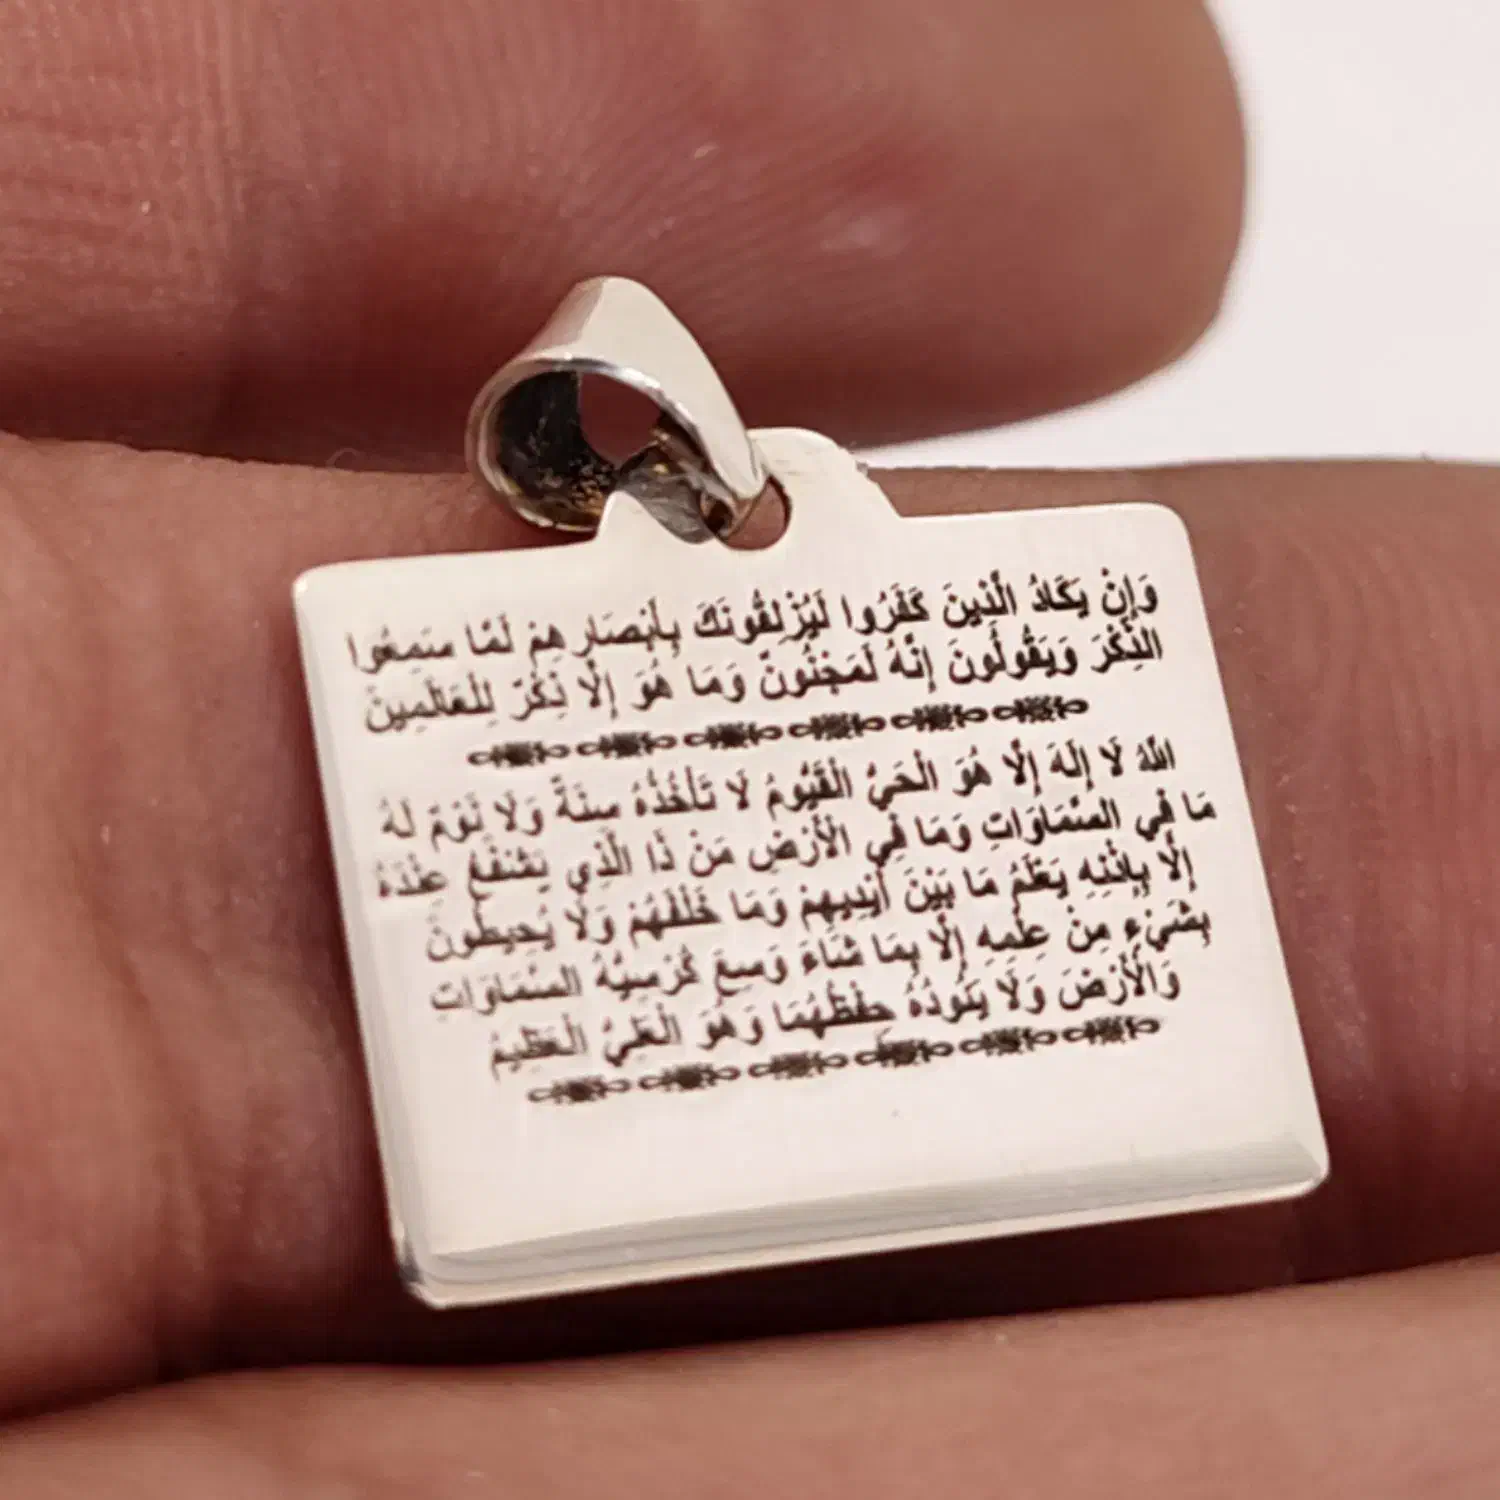 وَإِنْ يَكَادُ الَّذِينَ كَفَرُوا لَيُزْلِقُونَكَ بِأَبْصَارِهِمْ لَمَّا سَمِعُوا
الذِّكْرَ وَيَقُولُونَ إِنَّهُ لَمَجْنُونٌ وَمَا هُوَ إِلَّا ذِكْرٌ لِلْعَالَمِينَ
اللَّهُ لَا إِلَهَ إِلَّا هُوَ الْحَيُّ الْقَيُّومُ لَا تَأْخُذُهُ سِنَةٌ وَلَا نَوْمٌ لَهُ
مَا فِي السَّمَاوَاتِ وَمَا فِي الْأَرْضِ مَنْ ذَا الَّذِي يَشْفَعُ عِنْدَهُ
إِلَّا بِإِذْنِهِ يَعْلَمُ مَا بَيْنَ أَيْدِيهِمْ وَمَا خَلْفَهُمْ وَلَا يُحِيطُونَ
بِشَيْءٍ مِنْ عِلْمِهِ إِلَّا بِمَا شَاءَ وَسِعَ كُرْسِيُّهُ السَّمَاوَاتِ
وَالْأَرْضَ وَلَا يَئُودُهُ حِفْظُهُمَا وَهُوَ الْعَلِيُّ الْعَظِيمُ